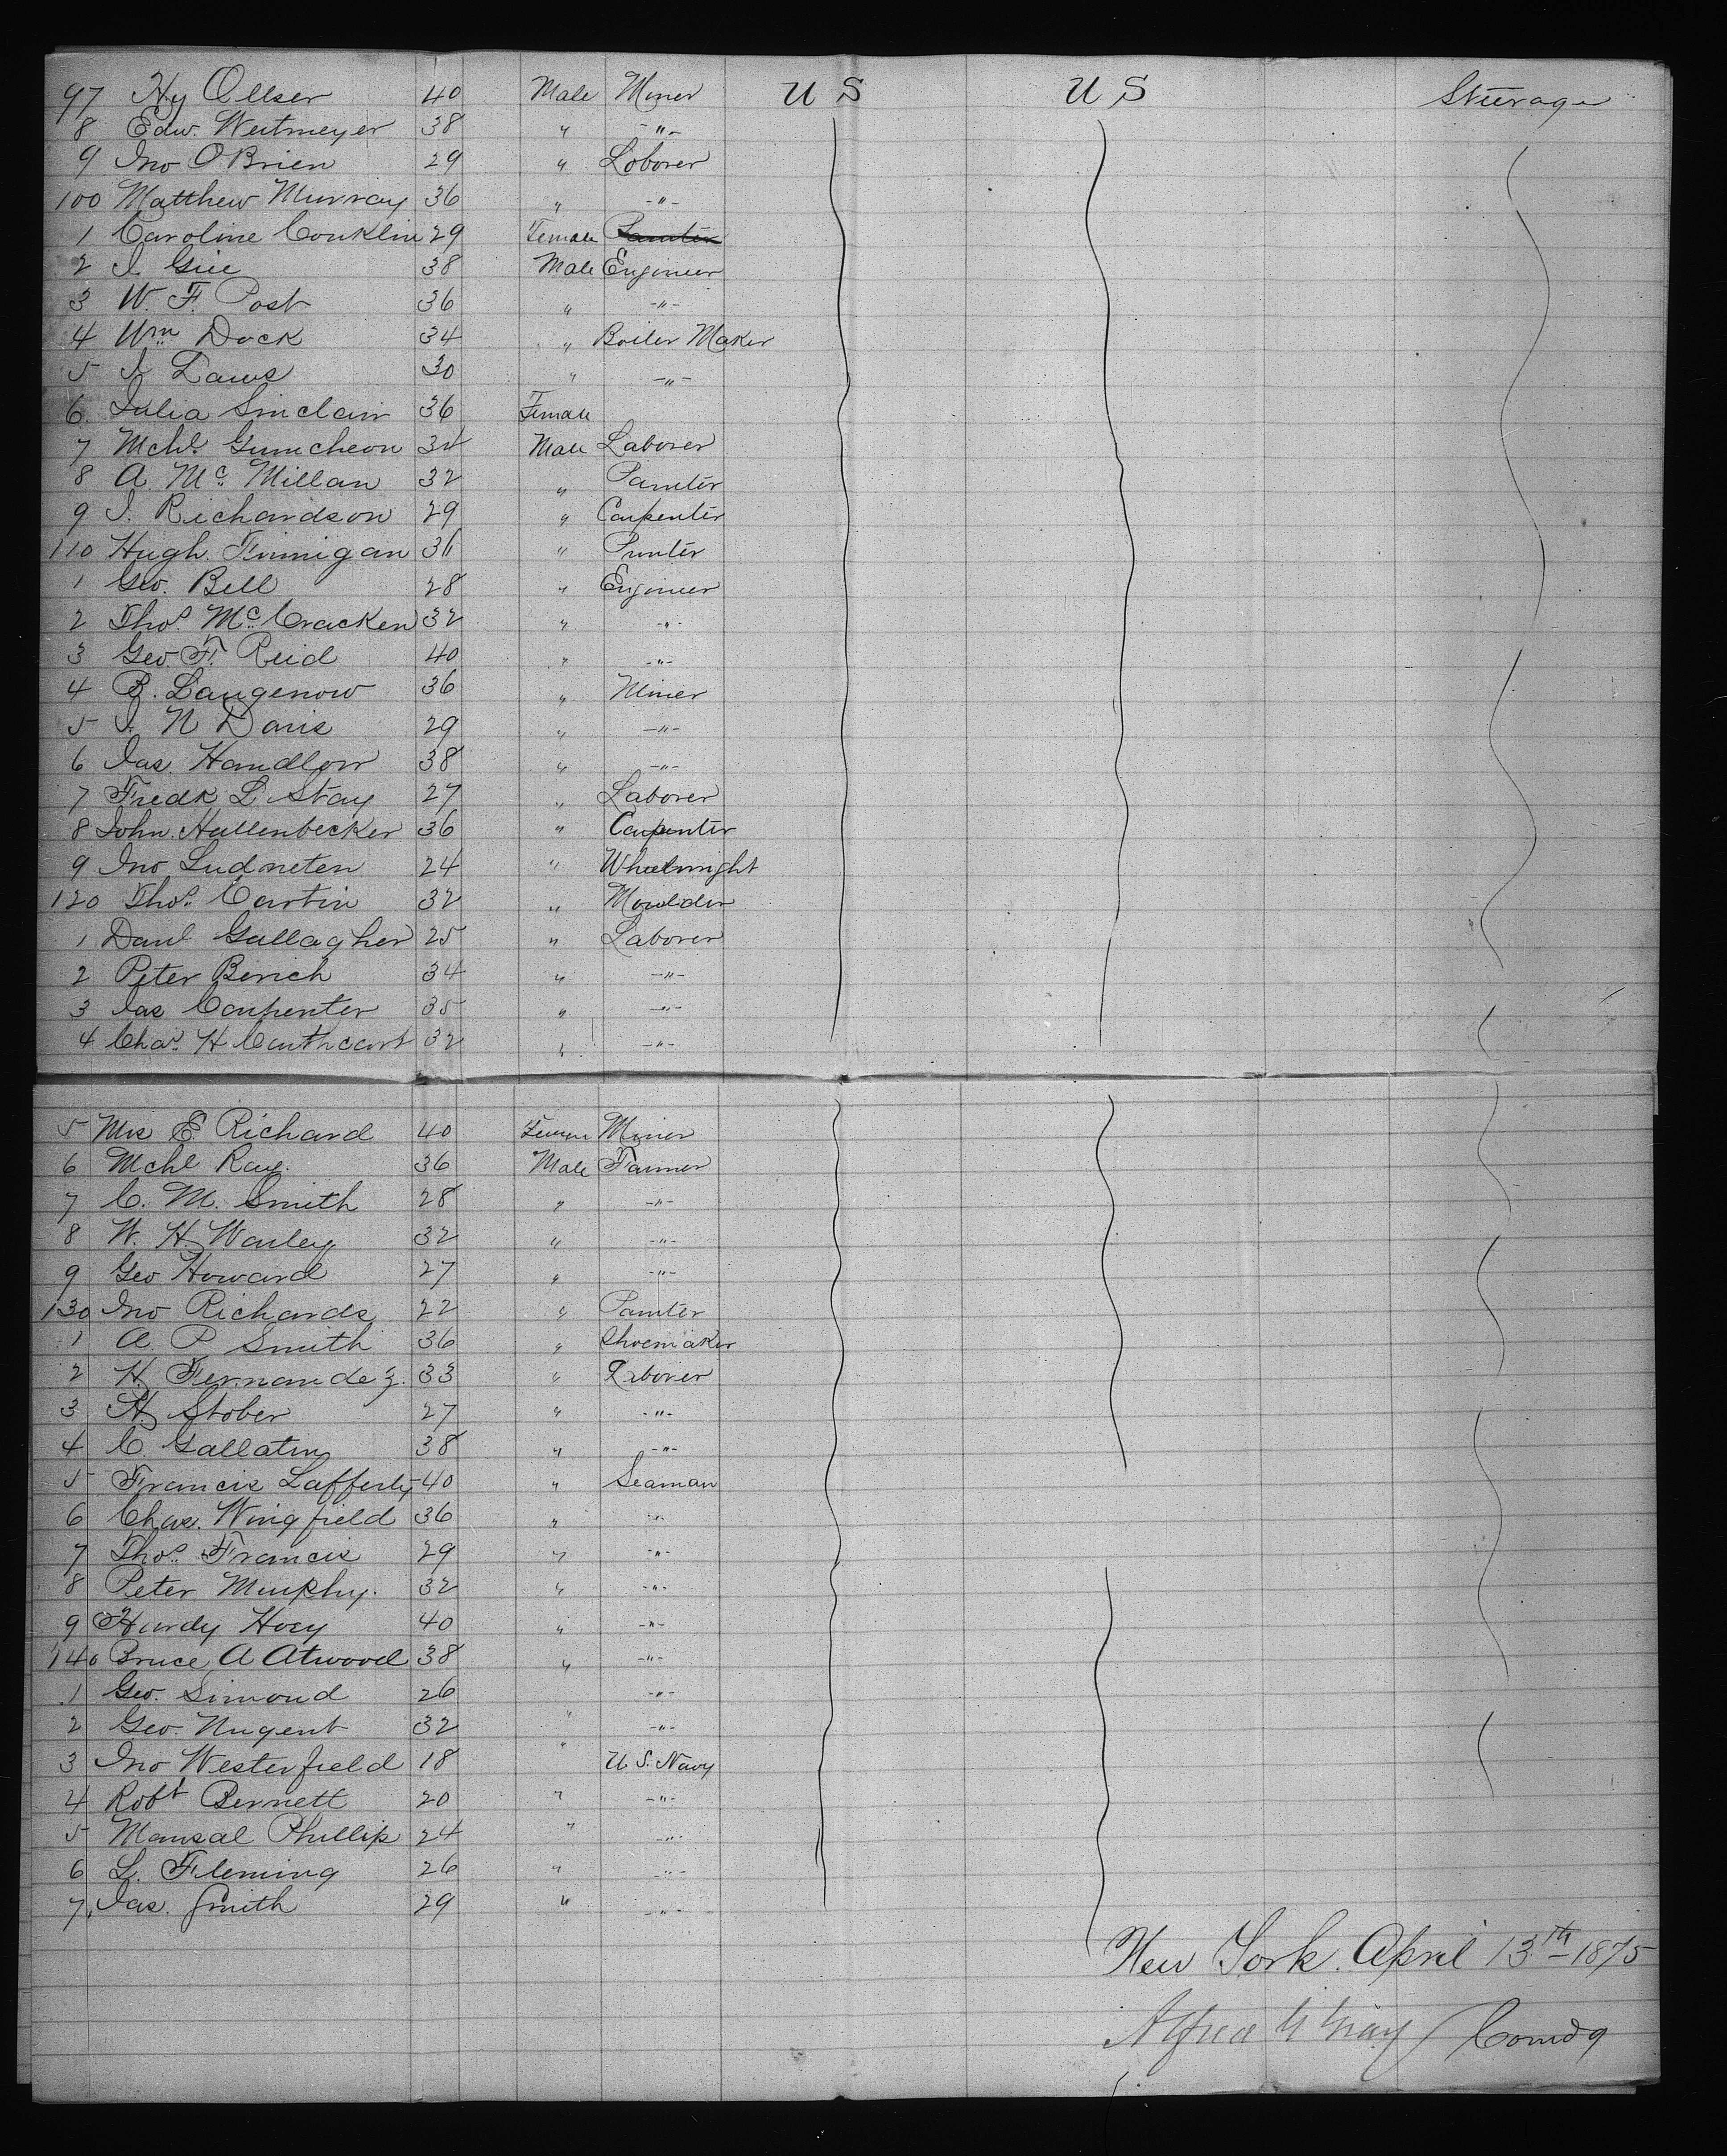 97 Hy Ollser 40 Male Miner U S U S Steerage
8 Edw. Weitmeyer 38 " -"-
9 Jno O'Brien 29 " Laborer
100 Matthew Murray 36 " -"-
1 Caroline Conklin 29 Female Painter
2 J. Gue 38 Male Engineer
3 W. F. Post 36 " -"-
4 Wm Dock 34 " Boiler Maker
5 J Laws 30 " -"-
6 Julia Sinclair 36 Female
7 Mchl Guncheon 34 Male Laborer
8 A. Mc Millan 32 " Painter
9 J. Richardson 29 " Carpenter
110 Hugh Finnigan 36 " Printer
1 Geo. Bell 28 " Engineer
2 Thos. Mc Cracken 32 " -"-
3 Geo. F. Reid 40 " -"-
4 B. Langenow 36 " Miner
5 J. N Davis 29 " -"-
6 Jas. Handlon 38 " -"-
7 Fredk L Stay 27 " Laborer
8 John Hallenbecker 36 " Carpenter
9 Jno Ludneten 24 " Wheelwright
120 Thos. Cartin 32 " Moulder
1 Danl Gallagher 25 " Laborer
2 Peter Berich 34 " -"-
3 Jas Carpenter 35 " -"-
4 Chas. H Cauthcart 32 " -"-
5 Mrs E Richard 40 Female Miner
6 Mchl Ray. 36 Male Farmer
7 C. M. Smith 28 " -"-
8 W. H. Warley 32 " -"-
9 Geo Howard 27 " -"-
130 Jno Richards 22 " Painter
1 A. P Smith 36 " Shoemaker
2 H. Fernandez. 33 " Laborer
3 H. Stober 27 " -"-
4 C. Gallatin 38 " -"-
5 Francis Lafferty 40 " Seaman
6 Chas. Wingfield 36 " -"-
7 Thos. Francis 29 " -"-
8 Peter Murphy. 32 " -"-
9 Hardy Hoey 40 " -"-
140 Bruce A Atwood 38 " -"-
1 Geo. Simond 26 -"-
2 Geo. Nugent 32 " -"-
3 Jno Westerfield 18 " U. S. Navy
4 Robt Bernett 20 " -"-
5 Mansal Phillips 24 " -"-
6 L. Fleming 26 " -"-
7 Jas. Smith 29 " -"-
New York. April 13th 1875
Alfred G Gray Comdg